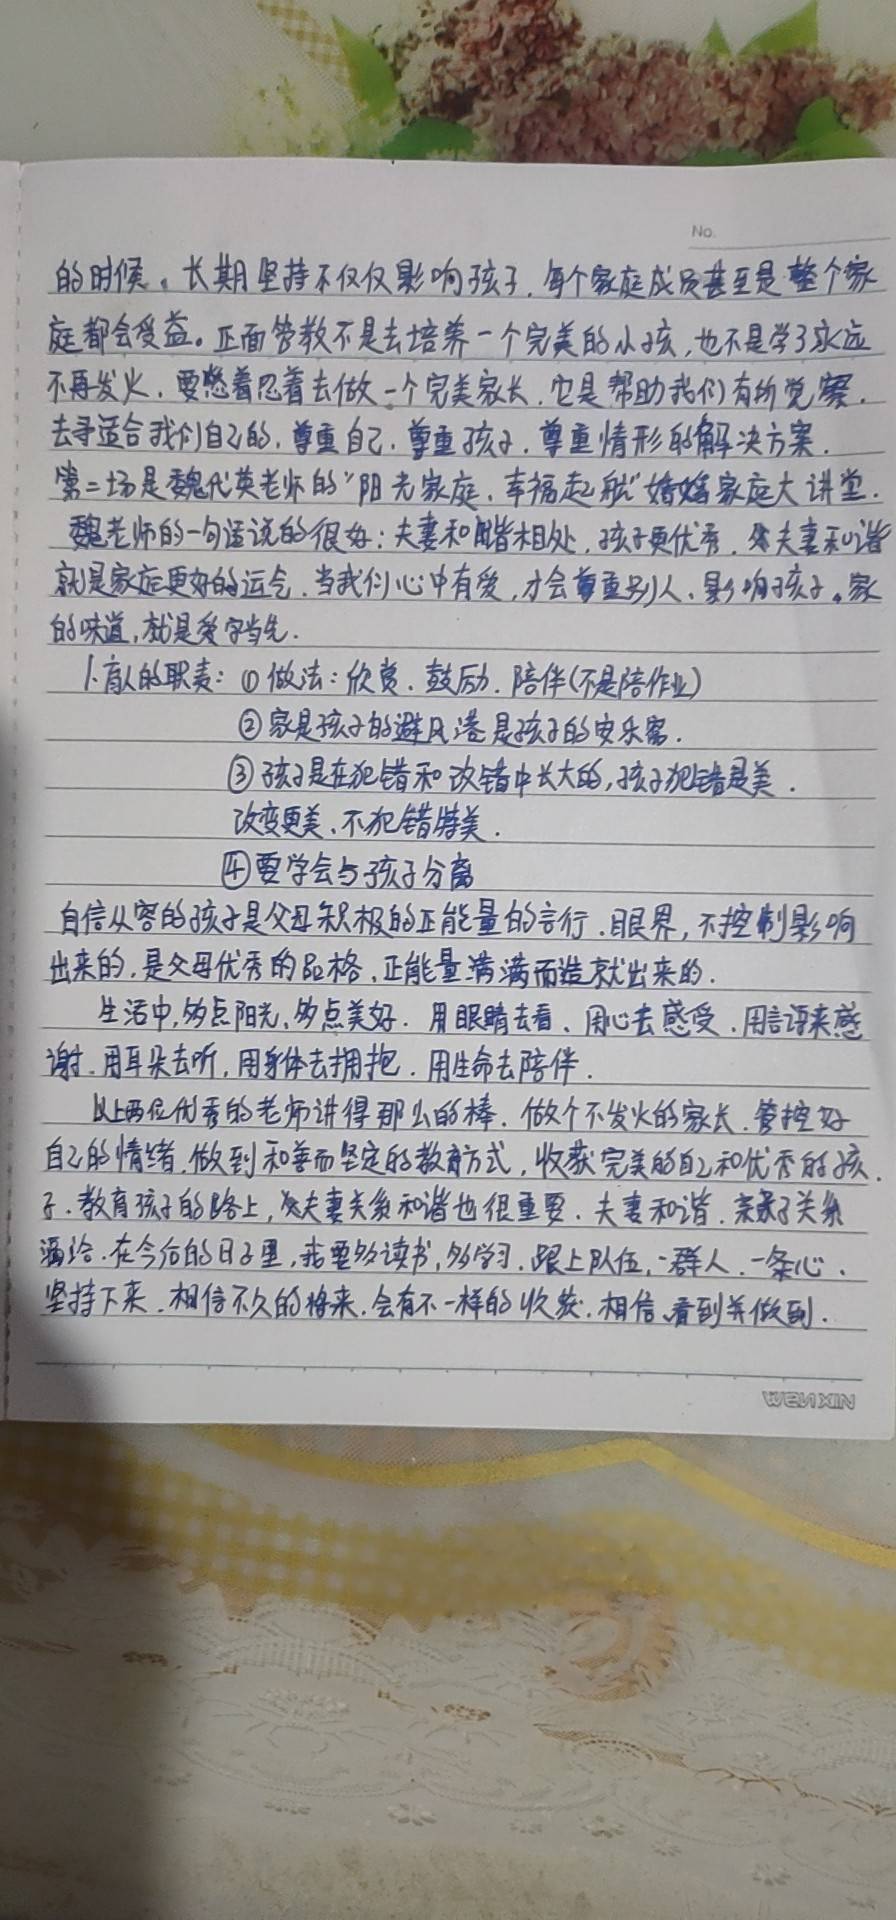 No.
的时候。长期坚持不仅仅影响孩子,每个家庭成员甚至是整个家
庭都会受益。正面管教不是去培养一个完美的小孩,也不是学了永远
不再发火,要憋着忍着去做一个完美家长,它是帮助我们有所觉察,
去寻适合我们自己的,尊重自己,尊重孩子,尊重情形的解决方案.
第二场是魏代英老师的“阳光家庭、幸福起航”婚姻家庭大讲堂.
魏老师的一句话说的很好:夫妻和谐相处,孩子更优秀,夫妻和谐
就是家庭更好的运气,当我们心中有爱,才会尊重别人、影响孩子。家
的味道,就是爱字当先.
1.育人的职责:①做法:欣赏、鼓励、陪伴(不是陪作业)
②家是孩子的避风港是孩子的安乐窝.
③孩子是在犯错和改错中长大的,孩子犯错是美.
改变更美、不犯错特美.
④要学会与孩子分离
自信从容的孩子是父母积极的正能量的言行、眼界,不控制影响
出来的,是父母优秀的品格、正能量满满而造就出来的.
生活中,多点阳光,多点美好.用眼睛去看、用心去感受、用言语来感
谢.用耳朵去听,用身体去拥抱.用生命去陪伴.
以上两位优秀的老师讲得那么的棒.做个不发火的家长.管控好
自己的情绪,做到和善而坚定的教育方式,收获完美的自己和优秀的孩
子.教育孩子的路上,夫妻关系和谐也很重要.夫妻和谐.亲子关系
在今后的日子里,我要多读书,多学习.跟上队伍,一群人.一条心.
坚持下来.相信不久的将来.会有不一样的收获.相信、看到并做到.
WENXIN